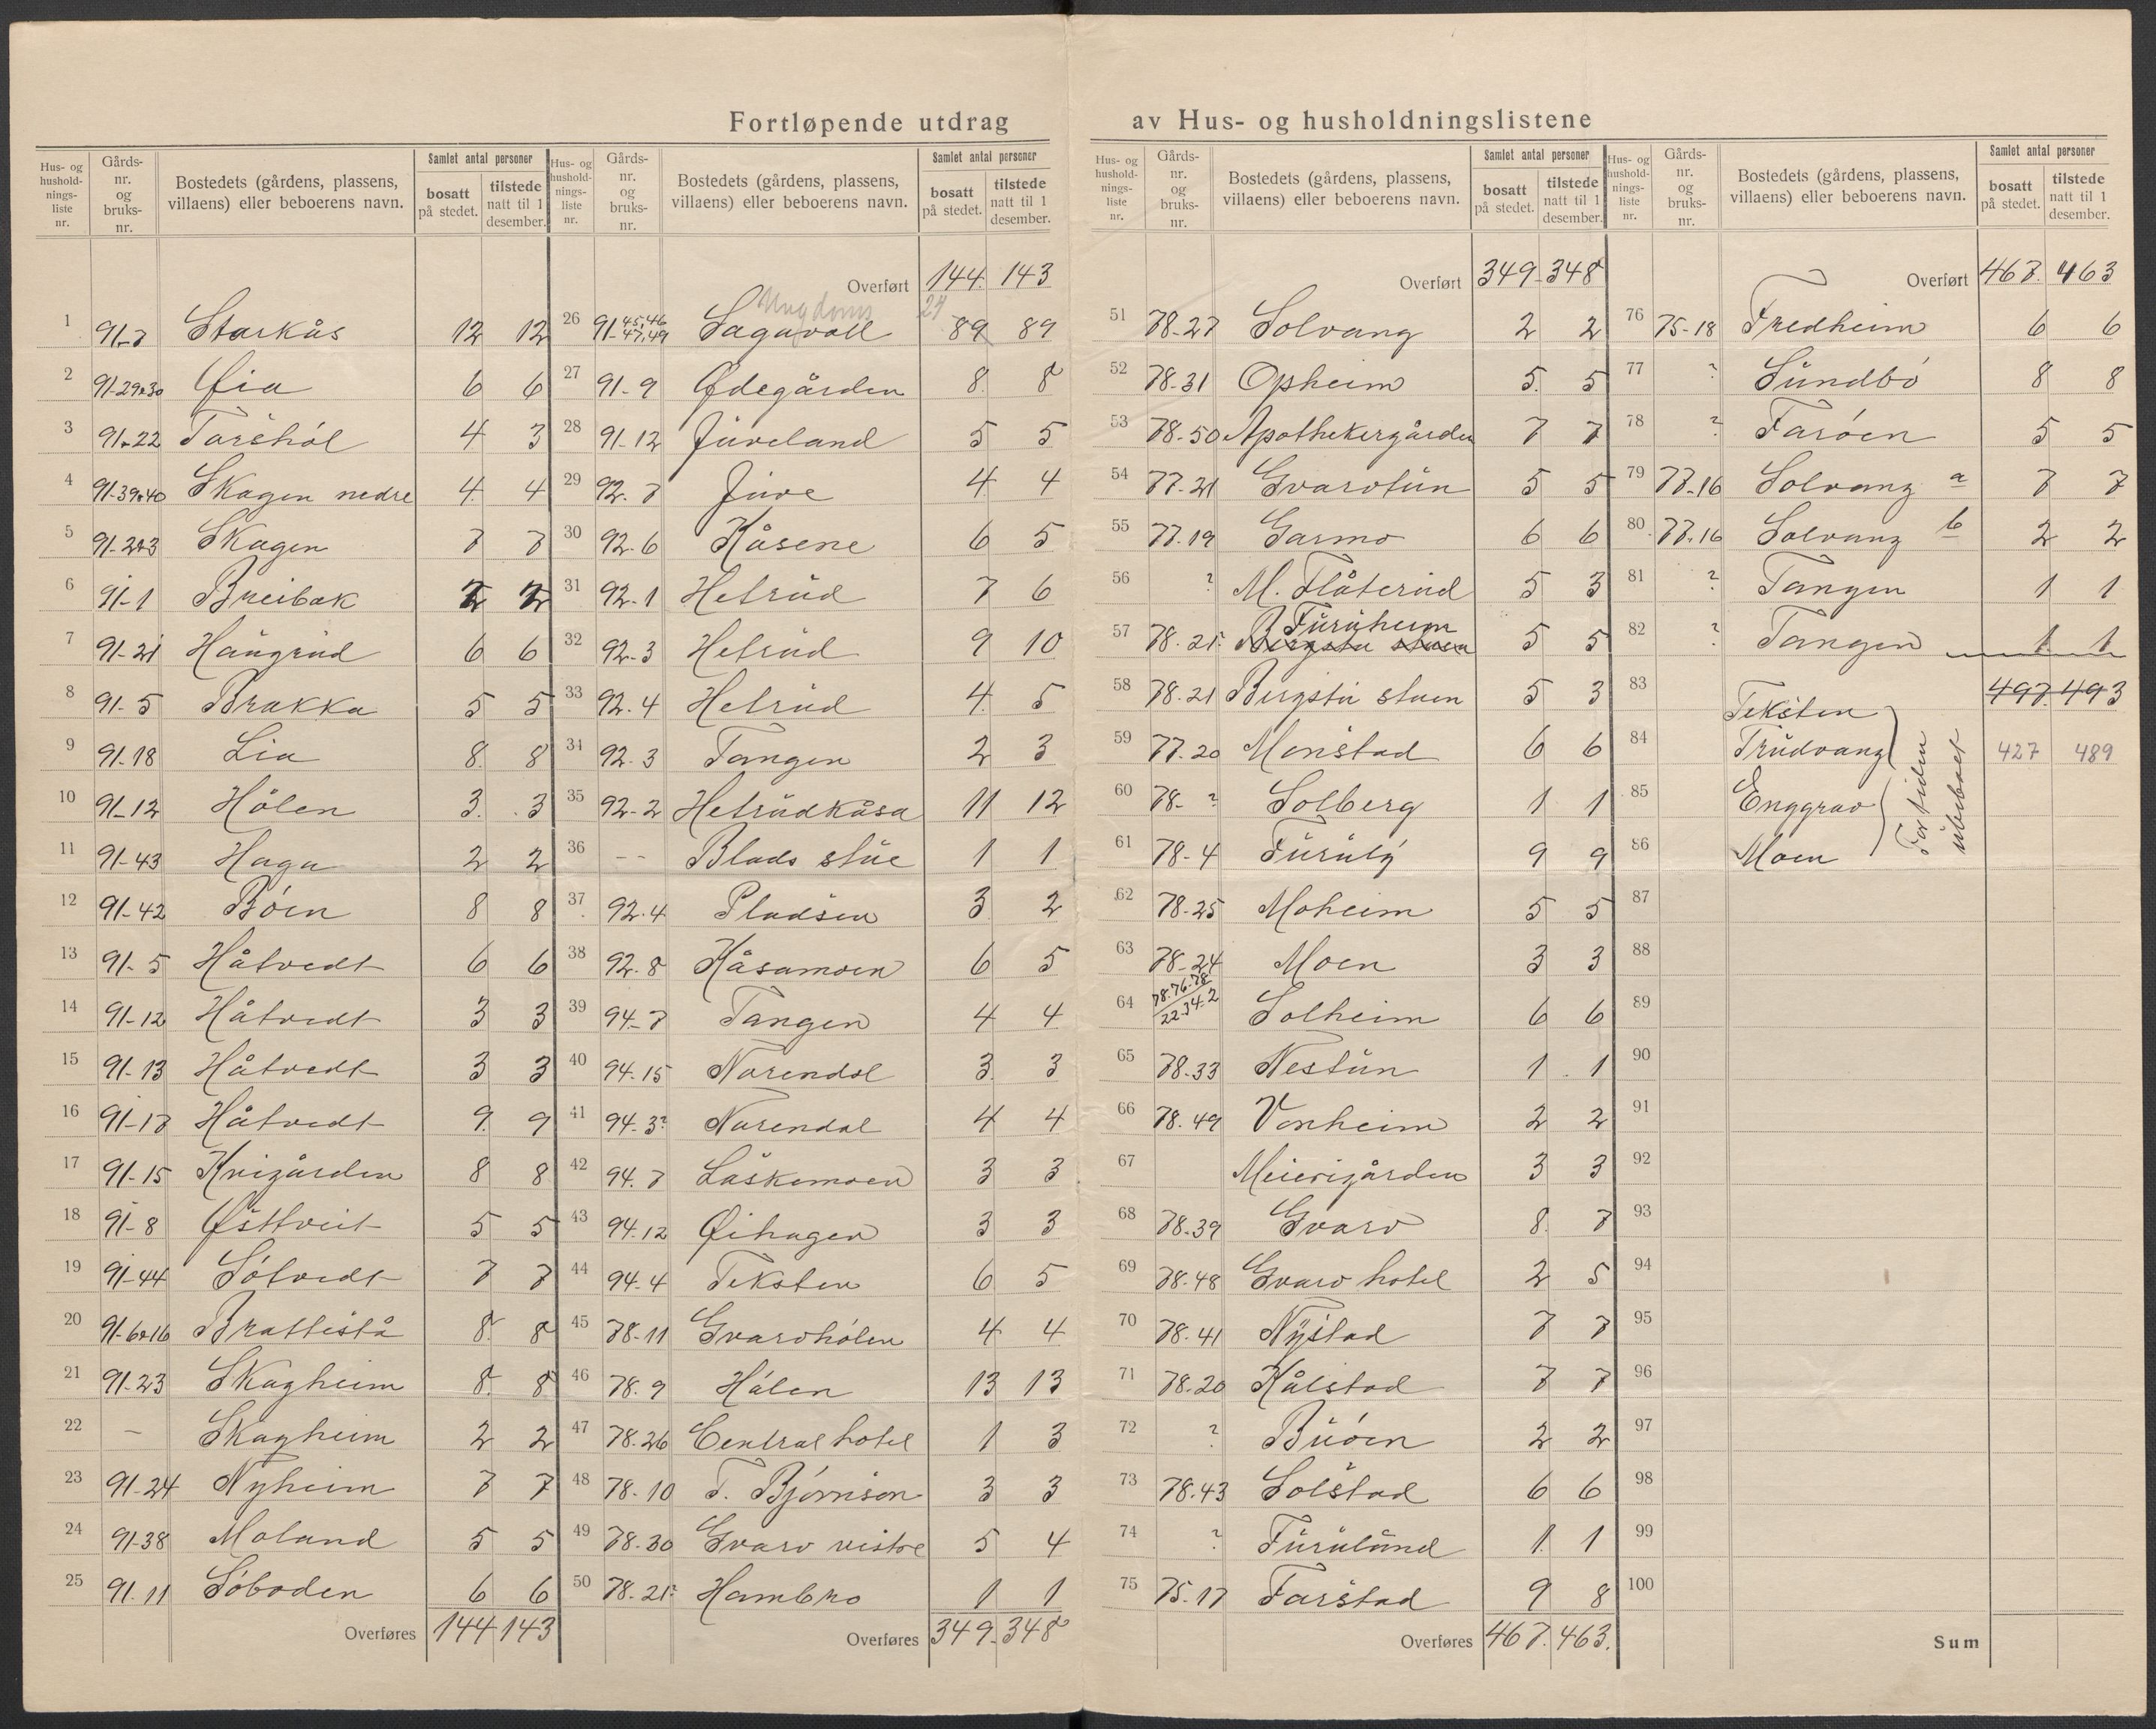 Fortløpende utdrag av Hus- og husholdningslistene
Hus- og husholdnings-liste nr. | Gårds-nr. og bruks-nr. | Bostedets (gårdens, plassens, villaens) eller beboerens navn. | Samlet antal personer | bosatt på stedet. | tilstede natt til 1 desember.
1 91-7 Starkås 12 12
2 91-29&30 Øia 6 6
3 91-22 Torshól 4 3
4 91-39&40 Skogen nedre 4 4
5 91-2&3 Skogen 7 7
6 91-1 Breibak 2 2
7 91-21 Haugrud 6 6
8 91-5 Brakka 5 5
9 91-18 Lia 8 8
10 91-12 Hólen 3 3
11 91-43 Haga 2 2
12 91-42 Bóen 8 8
13 91-5 Håtvedt 6 6
14 91-12 Håtvedt 3 3
15 91-13 Håtvedt 3 3
16 91-17 Håtvedt 9 9
17 91-15 Knigården 8 8
18 91-8 Østtveit 5 5
19 91-44 Sótvedt 7 7
20 91-6&16 Brattestå 8 8
21 91-23 Skogheim 8 8
22 – Skogheim 2 2
23 91-24 Nyheim 7 7
24 91-38 Moland 5 5
25 91.11 Sóboden 6 6
Overføres 144 143
Overført 144 143
Ungdoms 24
26 91-45,46 47,49 Sagavoll 89 89
27 91-9 Ødegården 8 8
28 91-12 Juveland 5 5
29 92-7 Juve 4 4
30 92-6 Kåsene 6 5
31 92-1 Hetrud 7 6
32 92-3 Hetrud 9 10
33 92-4 Hetrud 4 5
34 92-3 Tangen 2 3
35 92-2 Hetrudkåsa 11 12
36 -- Blads stue 1 1
37 92-4 Pladsen 3 2
38 92-8 Kåsamoen 6 5
39 94-7 Tangen 4 4
40 94-15 Norendal 3 3
41 94-3? Norendal 4 4
42 94-7 Låskemoen 3 3
43 94-12 Øihagen 3 3
44 94-4 Teksten 6 5
45 78-11 Gvarvhólen 4 4
46 78-9 Hólen 13 13
47 78-26 Central hotel 1 3
48 78-10 T. Bjórnson 3 3
49 78-30 Gvarv vistre 5 4
50 78-21? Hambro 1 1
Overføres 349 348
Overført 349 348
51 78-27 Solvang 2 2
52 78-31 Opheim 5 5
53 78-50 Apothekergården 7 7
54 77-21 Gvarvtun 5 5
55 77-19 Garmo 6 6
56 ? M. Flåterud 5 3
57 78-21? Furuheim Bergstu stuen 5 5
58 78-21 Bergstu stuen 5 3
59 77-20 Monstad 6 6
60 78-? Solberg 1 1
61 78-4 Furuly 9 9
62 78-25 Moheim 5 5
63 78-24 Moen 3 3
64 78.76.78 22.34.2 Solheim 6 6
65 78-33 Nestun 1 1
66 78-49 Vonheim 2 2
67 Meierigården 3 3
68 78-39 Gvarv 8 7
69 78-48 Gvarv hotel 2 5
70 78-41 Nystad 7 7
71 78-20 Kålstad 7 7
72 ? Buóen 2 2
73 78-43 Solstad 6 6
74 ? Furulund 1 1
75 75-17 Farstad 9 8
Overføres 467 463
Overført 467 463
76 75-18 Fredheim 6 6
77 ? Sundbó 8 8
78 ? Faróen 5 5
79 77-16 Solvang a 7 7
80 77-16 Solvang b 2 2
81 ? Tangen 1 1
82 ? Tangen 1 1
83 Teksten 497 493
84 Trudvang 427 489
85 Enggrav
86 Moen
For tiden ubeboet
87
88
89
90
91
92
93
94
95
96
97
98
99
100
Sum